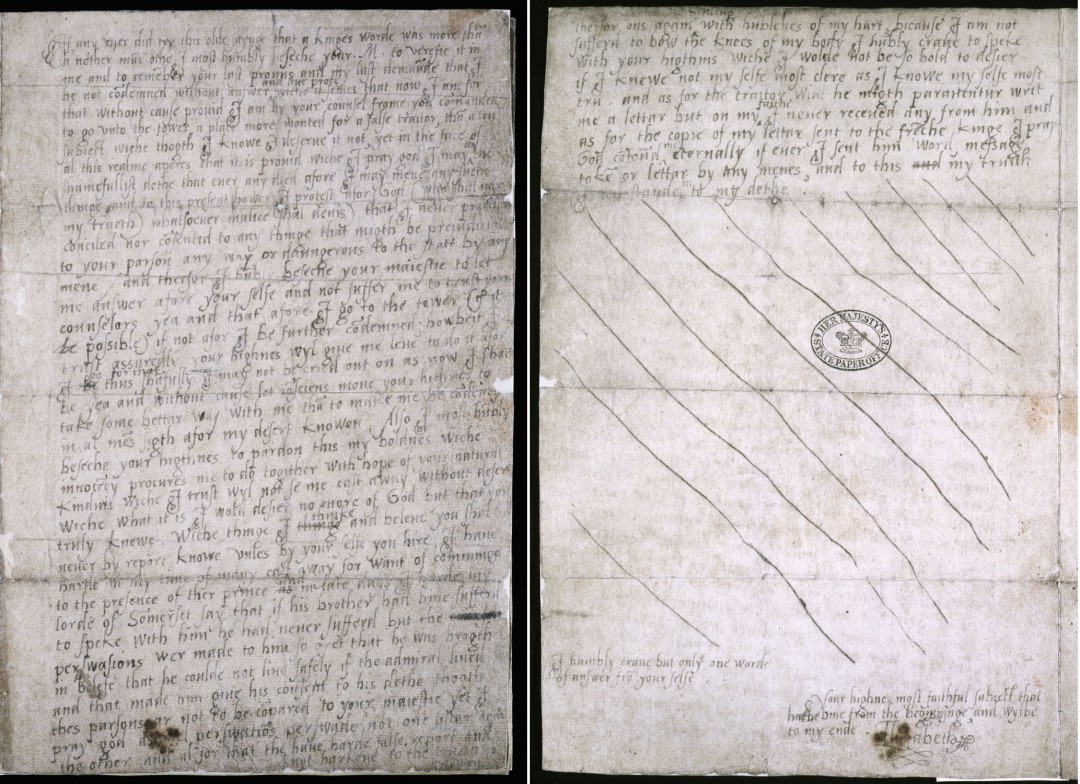 If any ever did try this olde saynge that a kinges worde was more tha
a nother mās othe I most humbly beseche your M. to verefie it in
me and to remēber your last promis and my last demaūde that I
be not codemned without answer
and due profe
wiche it semes that now I am for
that without cause provid I am by your counsel frome you comanded
to go unto the tower a place more wonted for a false traitor, tha a tru
subiect wiche thogth I knowe I deserve it not, yet in the face of
al this realme aperes that it is provid wiche I pray god I may
shamefullist dethe that ever any died afore I may mene any suche
thinge and to this present hower I protest afor God
my trueth) whatsoever malice shal devis) that I never
conciled nor cōsentid to any thinge that migth be preiudicial
to your parson any way or daungerous to the stat by any
mene and therfor I hūbly beseche your maiestie to let
me answer afore your selfe and not suffer me to trust your
counselors yea and that afore I go to the tower (if it
be possible) if not afor I be further codemned howbeit I
trust assuredly your highnes wyl give me leve to do it afor
I go for that
thus shāfully I may not be cried out on as now I shal
be yea and without cause let cōsciens move your hithnes to
take some bettar way with me thā to make me be cōdemned
in al mēs sigth afor my desert knowen. Also I most hūbly
beseche your higthnes to pardon this my boldnes wiche
innocecy procures me to do togither with hope of your natural
kindnis wiche I trust wyl not se me cast away without desert
wiche what it is I wold desier no more of God but that you
truly knewe. Wiche thinge I
thinke
thinge and beleve you shal
never by report knowe unles by your selfe you hire. I have
harde in my time of many cast away for want of comminge
to the presence of ther prince
and
in late days I harde my
lorde of Somerset say that if his brother had bine sufferd
to speke with him he had never sufferd but the
perswasions wer made to him so gret that he was brogth
in belefe that he coulde not live safely if the admiral lived
and that made him give his consent to his dethe thogth
thes parsons ar not to be cōpared to your maiestie yet I
pray god perswatiōs perswade not one sistar again
the other and al for that the have harde false report and
not harkene to the
therfor ons again with hūblenes of my hart, bicause I am not
sufferd to bow the knees of my body I hūbly crave to speke
with your higthnis wiche I wolde not be so bold to desier
if I knewe not my selfe most clere as I knowe my selfe most
tru. and as for the traitor Wiat he migth paraventur writ
me a lettar but on my
faithe
I never receved any from him and
as for the copie of my lettar sent to the frēche kinge I pray
God cōfoūd me eternally if ever I sent him word, message,
tokē or lettar by any menes, and to this and my trueth
I stande to my dethe.
HER MAJESTY'S
STATE PAPER OFFICE
I humbly crave but only one worde
of answer frō your selfe
Your highnes most faithful subiect that
hathe bine from the beginninge and wylbe
to my ende.
Elizabeth